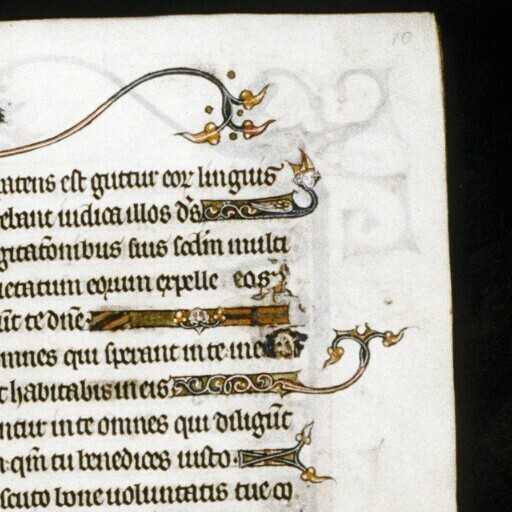 10
patens est guttur eor linguis
elant iudica illos ds
gitationibus suis scdm multi
ietatum eorum expelle eos
unt te dne
omnes qui sperant in te ine
t habitabis in eis
ntur in te omnes qui diligunt
qm tu benedices iusto
scuto bone uoluntatis tue co